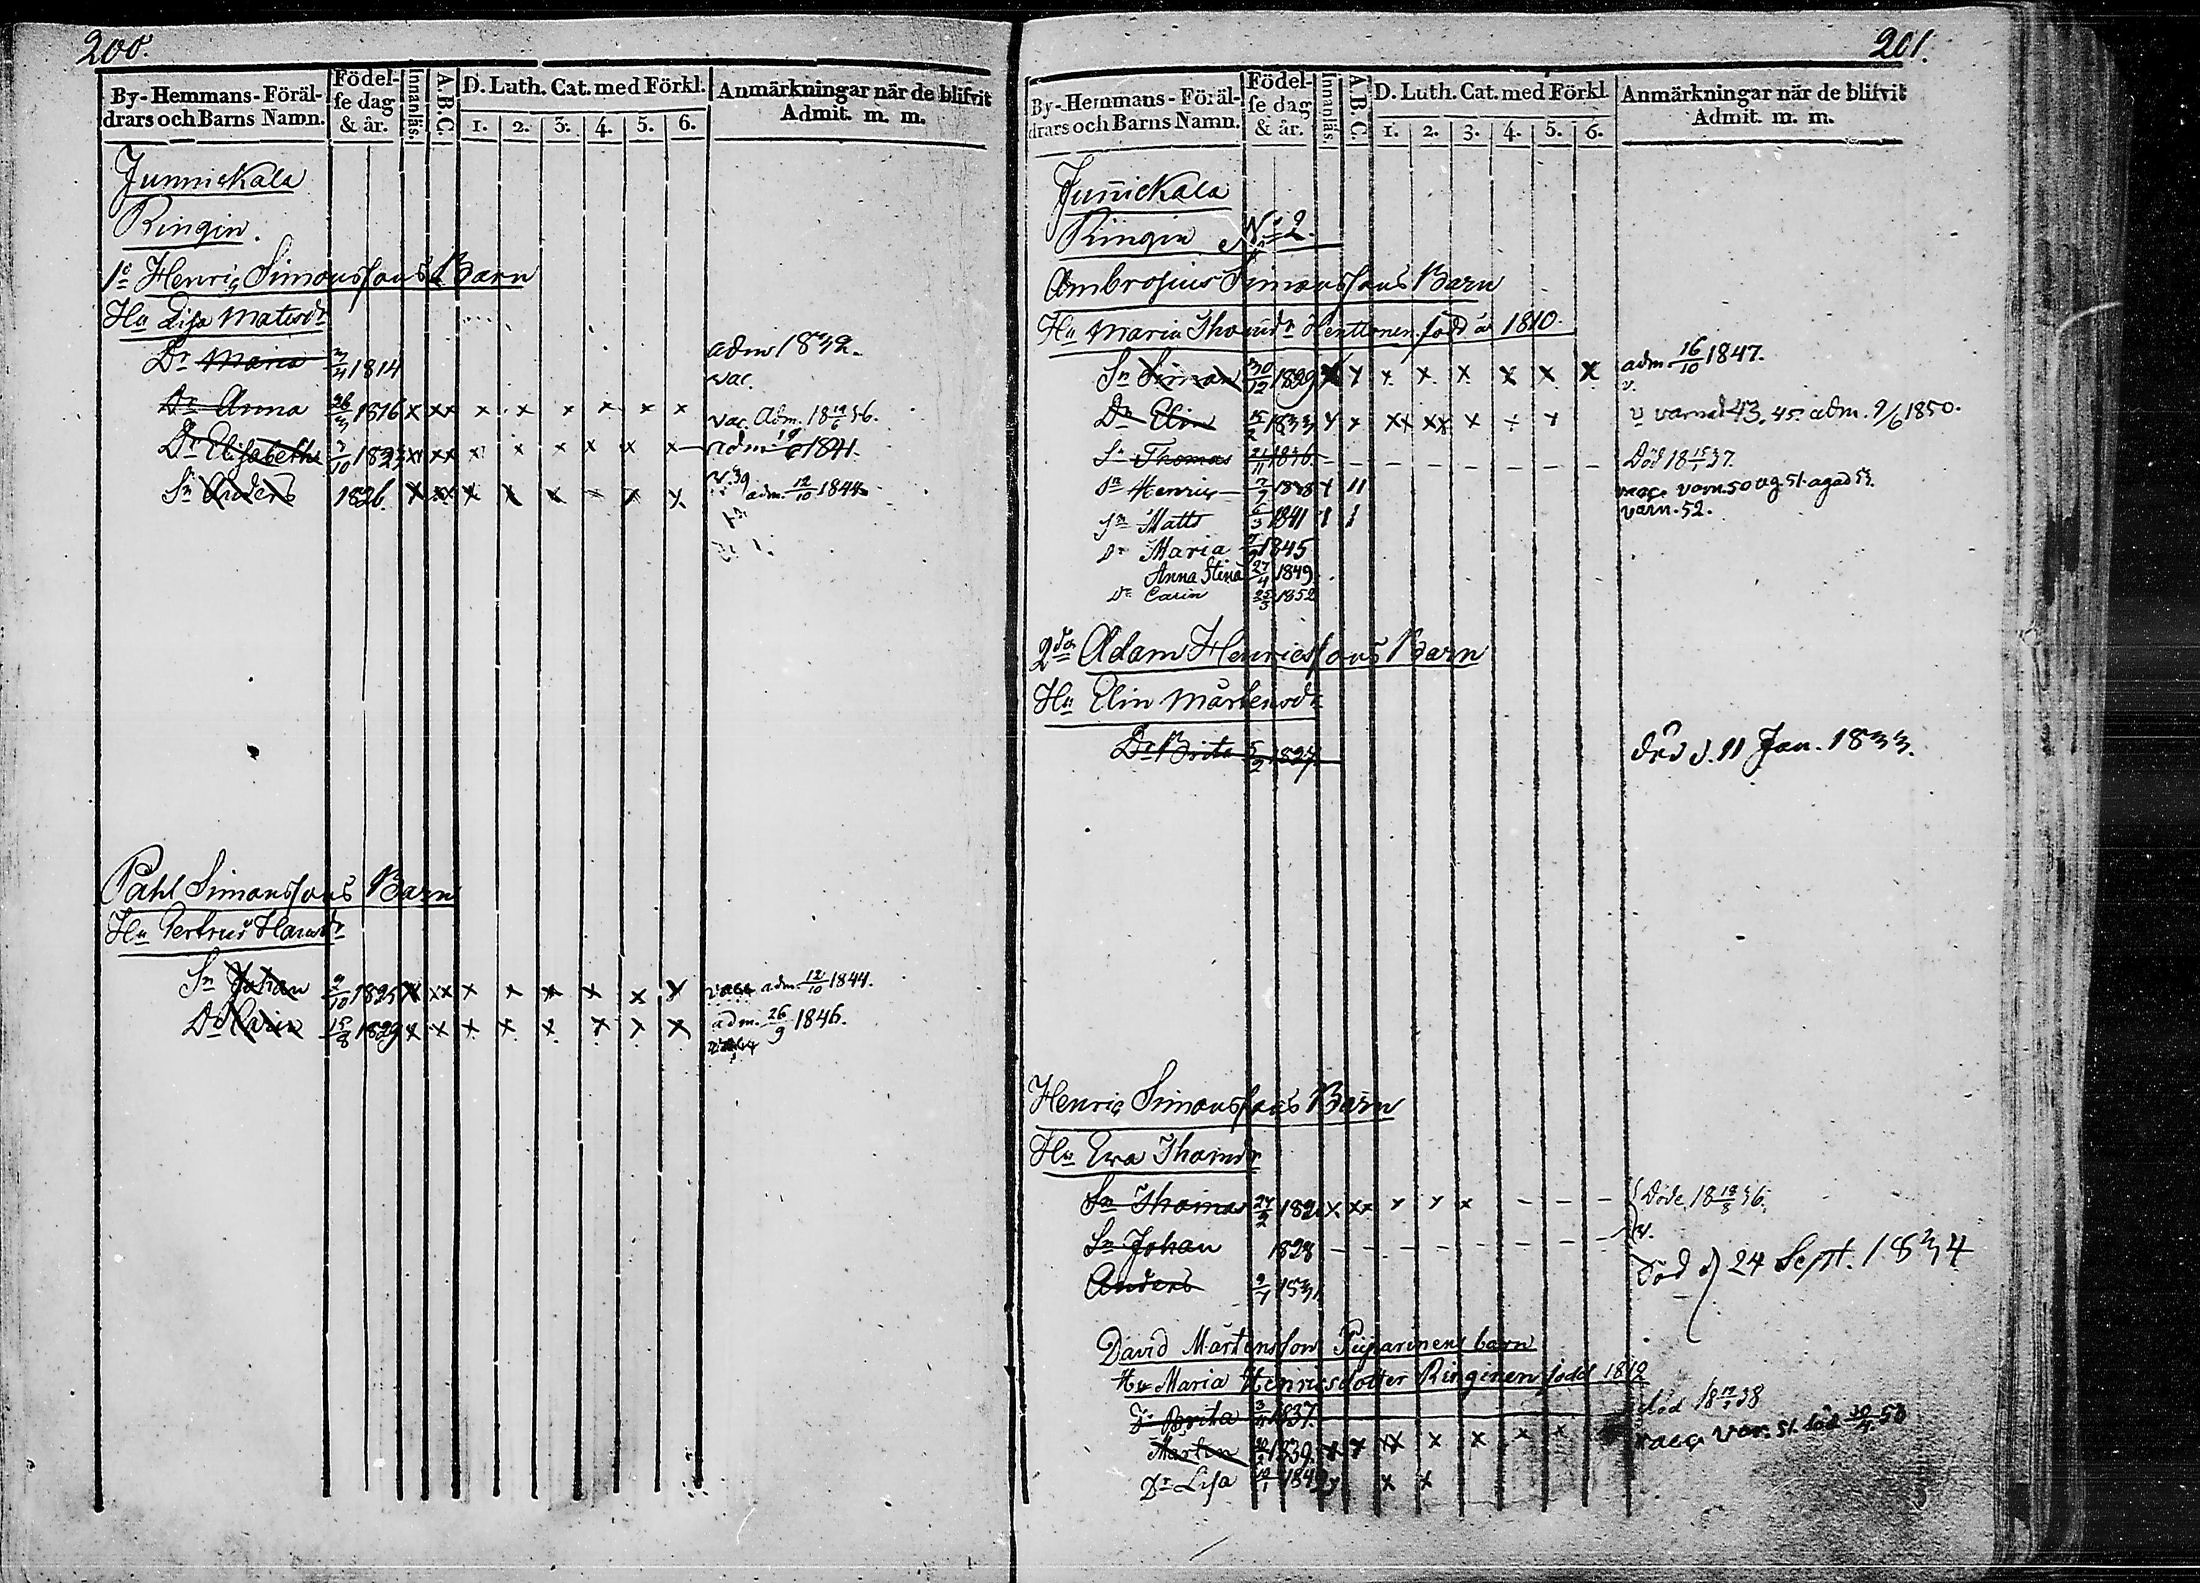 200.
By-Hemmans-Föräl-
drars och Barns Namn.
Födel-
se dag
& år.
Innanläs.
A.B.C.
D. Luth. Cat. med Förkl.
1. 2. 3. 4. 5. 6.
Anmärkningar när de blifvit
Admit. m. m.
Junnickala
Ringin.
1o Henric Simonssons Barn
Hu Lisa Matsdr
Dr Maria 1814 adm 1832.
vac.
Dr Anna 1816 x xx x x x x x x vac. Adm. 18 36.
Dr Elisabeth 1823 x xx x x x x x x adm 1841.
Sn Anders 1826. x xx x x x - x x adm. 12/10 1844
Påhl Simonssons Barn
Hu Gertrud Hansdr
Sn Johan 1825 x xx x x x x x x vacc adm. 12/10 1844.
Dr Carin 15/8 1829 x x x x x x x x adm. 26/9 1846.
201.
By-Hemmans-Föräl-
drars och Barns Namn.
Födel-
se dag
& år.
Innanläs.
A.B.C.
D. Luth. Cat. med Förkl.
1. 2. 3. 4. 5. 6.
Anmärkningar när de blifvit
Admit. m. m.
Juñickala
Ringin No 2.
Ambrosius Simonssons Barn
Hu Maria Thomdr Henttonen född år 1810.
Sn Simon 30/12 1829 x x x x x x x x adm. 16/10 1847.
v.
Dr Elin 15/2 1833 x x xx xx x + x v varnad 43. 45. adm. 9/6 1850.
Sn Thomas 21/11 1836. - - - - - - - - Död 18 15/1 37.
Sn Henric 1838 vacc varn. 50 og 51. agad 53.
Sn Matts 6/3 1841 varn. 52.
Dr Maria 1845
Anna Stina 27/4 1849.
Dr Carin 25/3 1852
2do Adam Henricssons Barn
Hu Elin Mårtensdr
Dr Brita 5/2 1827. död d. 11 Jan. 1833.
Henric Simonssons Barn
Hu Ewa Thomsdr
Sn Thomas x xx x x x - - - Döde 18 36.
v.
Sn Johan 1828 - - - - - - - -
Anders Död d 24 Sept. 1834
David Mårtensson Puparinens barn
Hu Maria Henricsdotter Ringinen född 1812
Dr Brita 1837. död 18 38
Mårten 1839. x x xx x x x x vacc var. 51. död 30/4 53
Dr Lisa x x